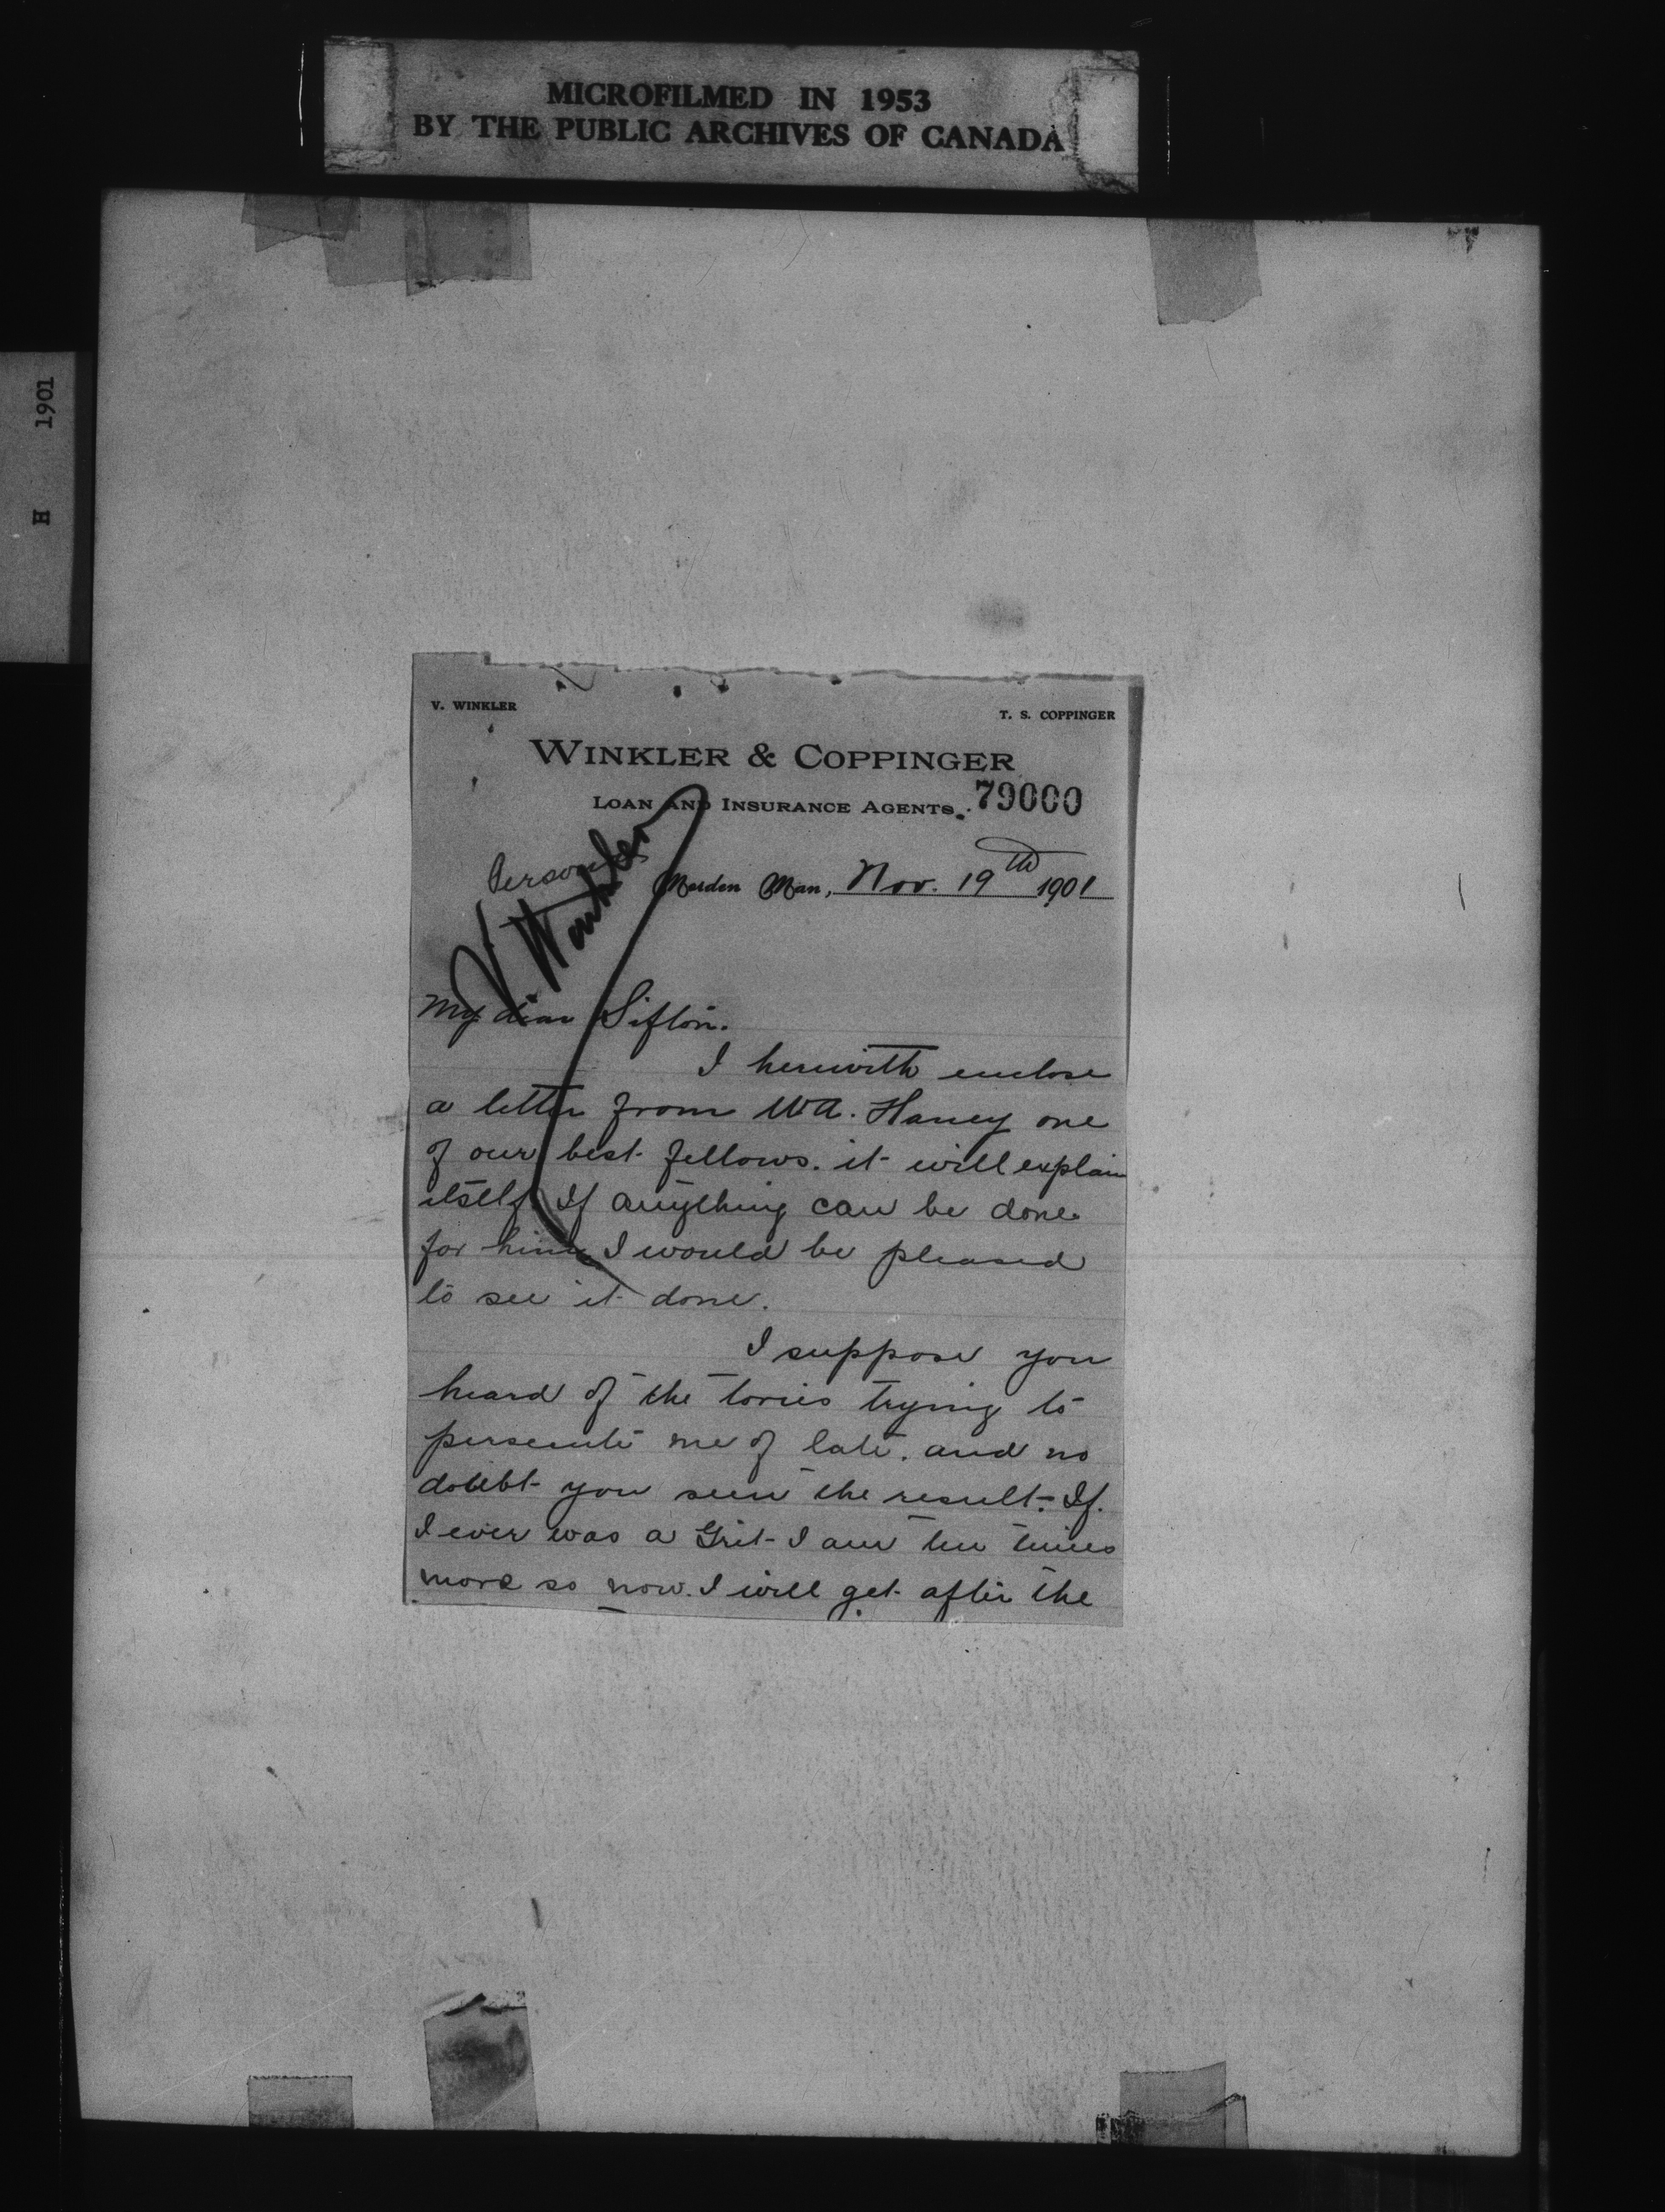 MICROFILMED IN 1953
BY THE PUBLIC ARCHIVES OF CANADA
H 1901
V. WINKLER
T. S. COPPINGER
WINKLER & COPPINGER
LOAN AND INSURANCE AGENTS.
79000
Personal
V Winkler
Morden Man, Nov. 19th 1901
My dear Sifton.
I herewith enclose
a letter from WA. Haney one
of our best fellows. it will explain
itself. If anything can be done
for him I would be pleased
to see it done.
I suppose you
heard of the tories trying to
persecute me of late. and no
doubt you seen the result. If
I ever was a Grit I am ten times
more so now. I will get after the